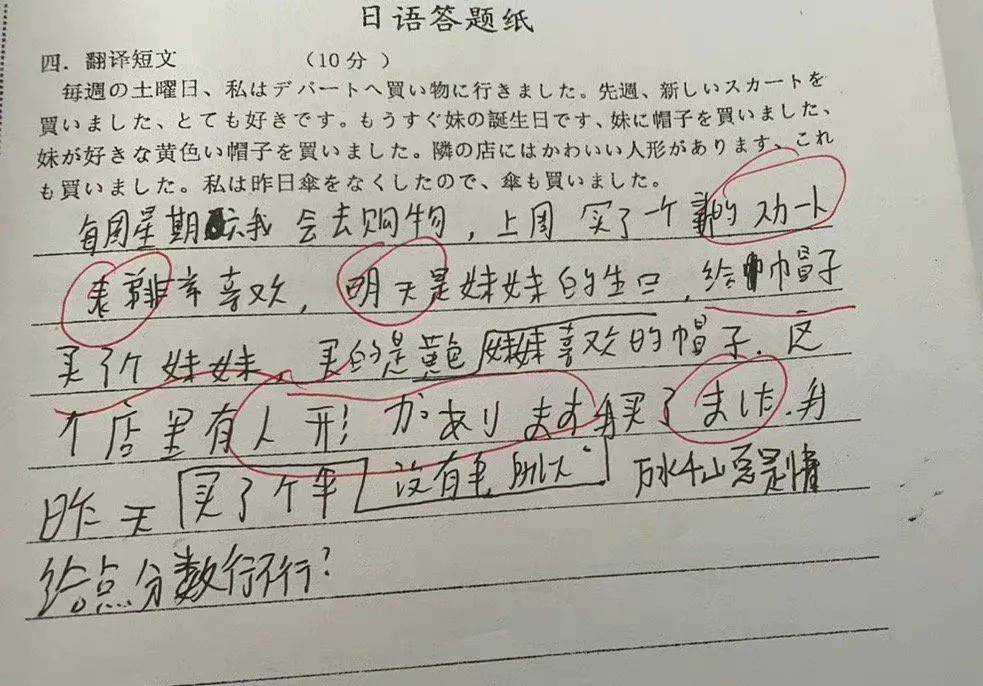 日语答题纸
四．翻译短文 （10分 ）
毎週の土曜日、私はデパートへ買い物に行きました。先週、新しいスカートを
買いました、とても好きです。もうすぐ妹の誕生日です、妹に帽子を買いました、
妹が好きな黄色い帽子を買いました。隣の店にはかわいい人形があります、これ
も買いました。私は昨日傘をなくしたので、傘も買いました。
每周星期六我会去购物，上周 买了一个新的スカート
我非常喜欢，明天是妹妹的生日,给帽子
买了个妹妹，买的是黄色妹妹喜欢的帽子.这
个店里有人形 があり ます 買了 ました.我
昨天买了个伞没有伞,所以 万水千山总是情
给点分数行不行?